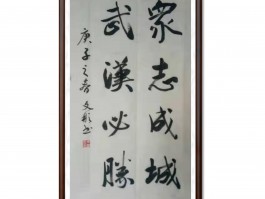 眾志成城
武漢必勝
庚子之春文彬书